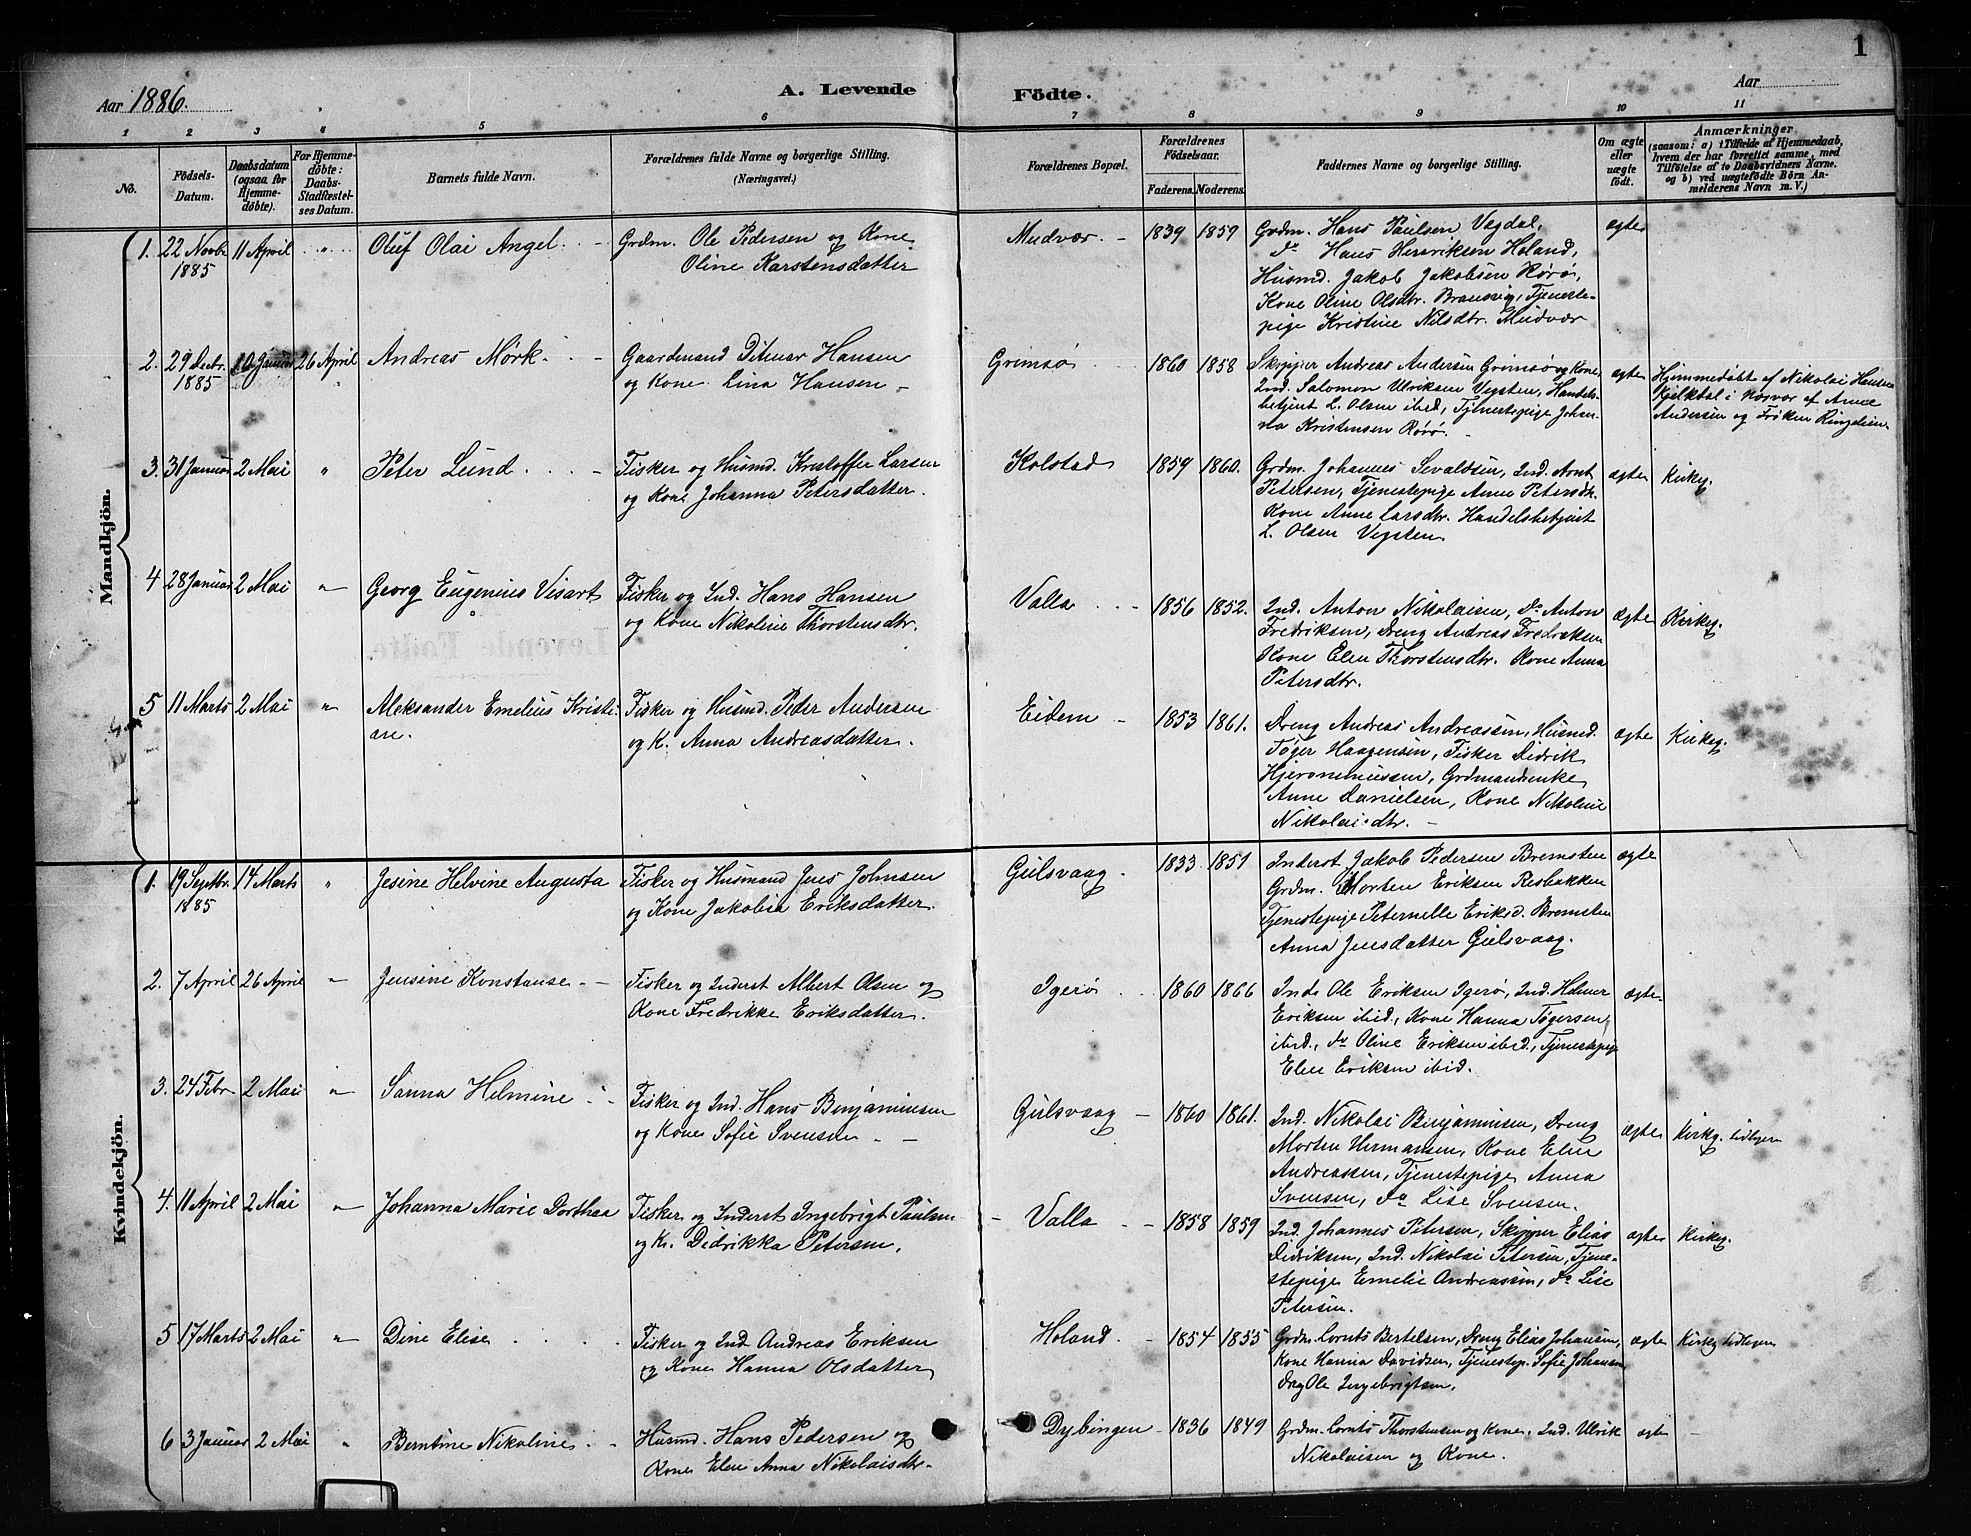 1
Aar 1886.
A. Levende Födte.
Aar
1 2 3 4 5 6 7 8 9 10 11
No.
Födsels-Datum.
Daabsdatum (ogsaa for Hjemme-døbte).
For Hjemme-døbte: Daabs-Stadfæstel-ses Datum.
Barnets fulde Navn.
Forældrenes fulde Navne og borgerlige Stilling.
(Næringsvei.)
Forældrenes Bopæl.
Forældrenes Födselsaar.
Faderens. Moderens.
Faddernes Navne og borgerlige Stilling.
Om ægte eller uægte født.
Anmærkninger
(saasom: a) i Tilfælde af Hjemmedaab, hvem der har forrettet samme, med Tilføielse af to Daabsvidners Navne. og b) ved uægtefödte Börn An-melderens Navn m. V.)
Mandkjön.
1. 22 Novbr 1885 11 April " Oluf Olai Angel. Grdm. Ole Pedersen og Kone
Oline Karstensdatter
Mudvær. 1839 1859 Grdm. Hans Paulsen Vegdal,
do Hans Henriksen Holand,
Husmd. Jakob Jakobsen Rørø,
Kone Oline Olsdtr. Bransvig, Tjeneste-
pige Kristine Nilsdtr. Mudvær
ægte
2. 29 Decbr. 1885 10 Januar 26 April Andreas Mörk. Gaardmand Ditmar Hansen
og Kone Lina Hansen
Grimsø 1860 1858 Skipper Andreas Andersen Grimsø og Kone,
Ind. Salomon Ulriksen Vegsten, Handels-
betjent L. Olsen ibid, Tjenestepige Johan-
na Kristensen Rørø.
ægte Hjemmedøbt af Nikolai Hansen
i af Arne
Andersen og Frøken
3. 31 Januar 2 Mai " Peter Lund. Fisker og Husmd. Kristoffer Larsen
og Kone Johanna Petersdatter.
Kolstad 1859 1860. Grdm. Johannes Sevaldsen, Ind. Arnt
Petersen, Tjenestepige Anne Petersdtr.
Kone Anne Larsdtr. Handelsbetjent
L. Olsen Vegsten.
ægte Kirkeg.
4 28 Januar 2 Mai " Georg Eugenius Visart Fisker og Ind. Hans Hansen
og Kone Nikoline Thorstensdtr.
Valla 1856 1852. Ind. Anton Nikolaisen, do Anton
Fredriksen, Dreng Andreas Fredriksen
Kone Elen Thorstensdtr. Kone Anna
Petersdtr.
ægte Kirkeg.
5 11 Marts 2 Mai " Aleksander Emelius Kristi-
an. Fisker og Husmd. Peder Andersen
og K. Anna Andreasdatter.
Eidem 1853 1861. Dreng Andreas Andreassen, Husmd.
Tøger Haagensen, Fisker Didrik
Hjeronimussen, Grdmandsenke
Anne Danielsen, Kone Nikoline
Nikolaisdtr.
ægte Kirkeg.
Kvindekjön.
1. 19 Septbr. 1885 14 Marts " Jesine Helvine Augusta Fisker og Husmand Jens Johnsen
og Kone Jakobia Eriksdatter.
Gulsvaag. 1833 1851 Inderst Jakob Pedersen Bremsten
Grdm. Morten Eriksen Resbakken
Tjenestepige Peternelle Eriksd. Bremsten
Anna Jensdatter Gulsvaag.
ægte
2. 7 April 26 April " Jensine Konstanse Fisker og Inderst Albert Olsen og
Kone Fredrikke Eriksdatter.
Igerø 1860 1866 Inds Ole Eriksen Igerø, Ind. Helmer
Eriksen ibid., Kone Hanna Tøgersen
ibid., do Oline Eriksen ibid., Tjenestepige
Elen Eriksen ibid.
ægte
3. 24 Febr 2 Mai " Sanna Helmine Fisker og Ind. Hans Benjaminsen
og Kone Sofie Svensen
Gulsvaag 1860 1861. Ind. Nikolai Benjaminsen, Dreng
Morten Hermansen, Kone Elen
Andreassen, Tjenestepige Anna
Svensen, do Lise Svensen.
ægte Kirkg.
4. 11 April 2 Mai " Johanna Marie Dorthea Fisker og Inderst Ingebrigt Paulsen
og K. Didrikka Petersen.
Valla 1858 1859 Ind. Johannes Petersen, Skipper Elias
Didriksen, Ind. Nikolai Petersen, Tjene-
stepige Emelie Andreassen, do Lise
Petersen.
ægte Kirkeg.
5 17 Marts 2 Mai " Dine Elise Fisker og Ind Andreas Eriksen
og Kone Hanna Olsdatter
Holand 1854 1855 Grdm. Cornts Bertelsen, Dreng Elias Johansen,
Kone Hanna Davidsen, Tjenestep. Sofie Johansen
Dreg Ole Ingebrigtsen.
ægte Kirkg
6 3 Januar 2 Mai " Berntine Nikoline Husmd. Hans Pedersen og
Kone Elen Anna Nikolaisdtr.
Dybingen 1836 1849 Grdm. Cornts Thorstensen og Kone. Ind. Ulrik
Nikolaisen og Kone.
ægte